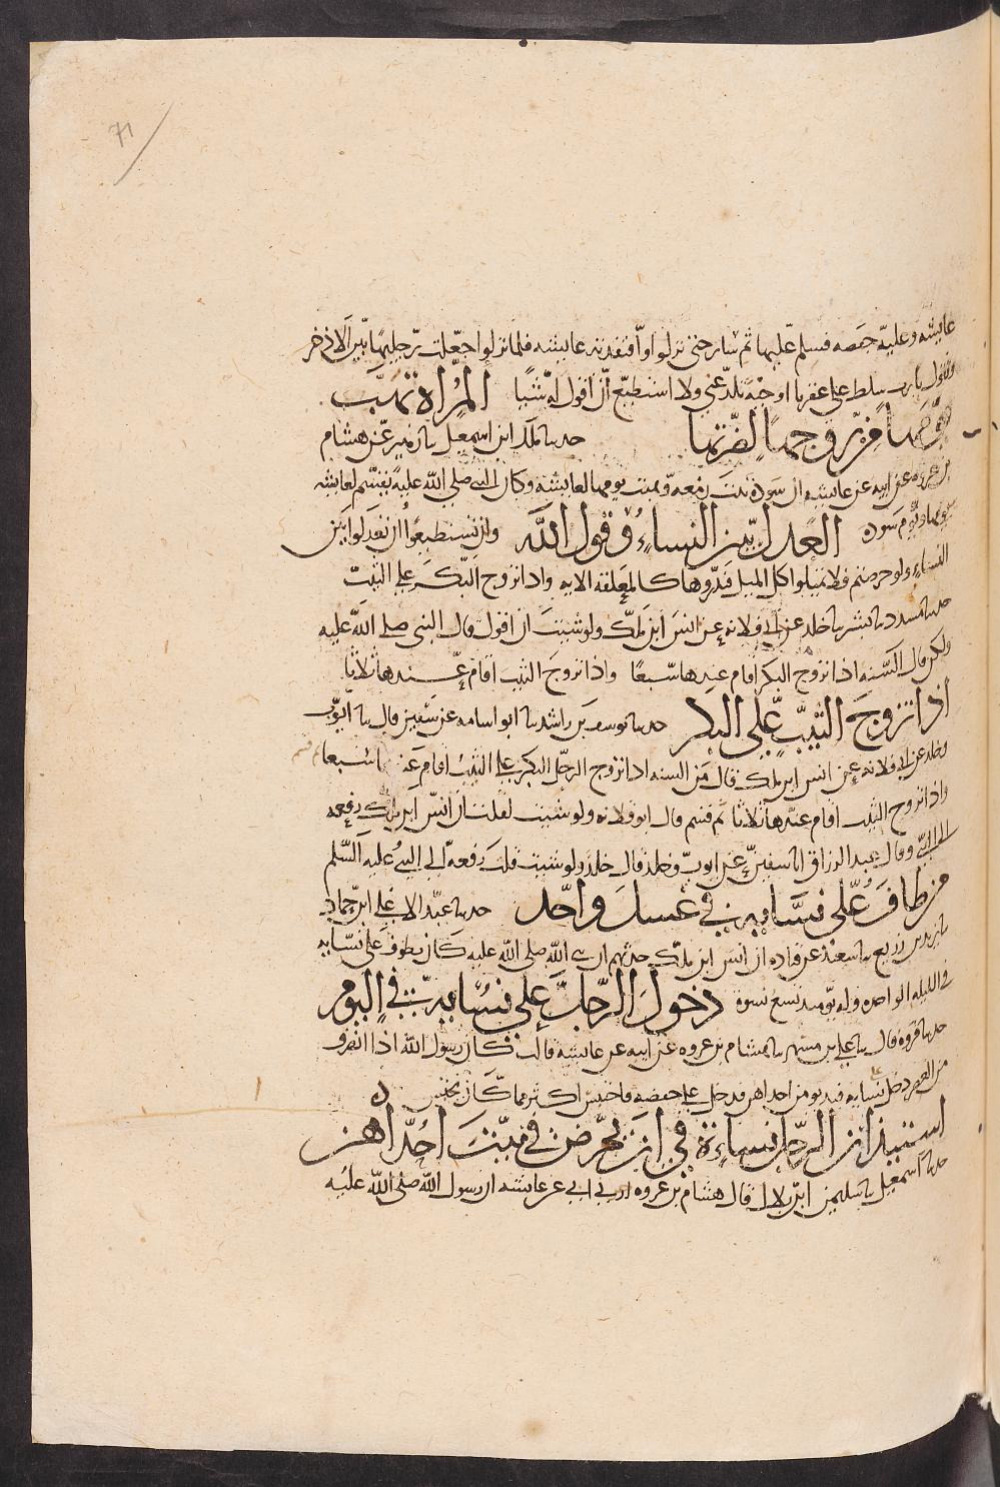 71
عايشه وعليه حفصه فسلم عليها ثم سار حتى نزلوا وافتقدته عايشه فلما نزلوا جعلت رجليها بين الاذخر
وتقول يا رب سلط علي عقربا او حية تلدغني ولا استطيع ان اقول له شيا المراة تهب
يومها من زوجها لضرتها حدثنا ملك ابن اسمعيل نا زهير عن هشام
بن عروه عن ابيه عن عايشه ان سودة بنت زمعه وهبت يومها لعايشه وكان النبي صلى الله عليه يقسم لعايشه
بيومها ويوم سوده العدل بين النساء وقول الله ولن تستطيعوا ان تعدلوا بين
النساء ولو حرصتم فلا تميلوا كل الميل فتذروها كالمعلقه الايه واذا تزوج البكر على الثيب
حدثنا مسدد نا بشر نا خلد عن ابي قلابه عن انس ابن ملك ولو شيت ان اقول قال النبي صلى الله عليه
ولكن قال السنه اذا تزوج البكر اقام عندها سبعا واذا تزوج الثيب اقام عندها ثلاثا
اذا تزوج الثيب على البكر حدثنا يوسف بن راشد نا ابو اسامه عن سفين قال نا ايوب
وخلد عن ابي قلابه عن انس ابن ملك قال من السنه اذا تزوج الرجل البكر على الثيب اقام عندها سبعا ثم قسم
واذا تزوج الثيب اقام عندها ثلاثا ثم قسم قال ابو قلابه ولو شيت لقلت ان انس ابن ملك رفعه
الى النبي وقال عبد الرزاق انا سفين عن ايوب وخلد قال خلد ولو شيت قلت رفعه الى النبي عليه السلم
من طاف على نسايه في غسل واحد حدثنا عبد الاعلى ابن حماد
نا يزيد بن زريع نا سعيد عن قتاده ان انس ابن ملك حدثهم ان نبي الله صلى الله عليه كان يطوف على نسايه
في الليله الواحده وله يوميذ تسع نسوة دخول الرجل على نسايه في اليوم
حدثنا فروه قال نا علي بن مسهر نا هشام بن عروه عن ابيه عن عايشه قالت كان رسول الله اذا انصرف
من العصر دخل على نسايه فيدنو من احداهن فدخل على حفصه فاحتبس اكثر مما كان يحتبس
استيذان الرجل نساءه في ان يمرض في بيت احداهن
حدثنا اسمعيل نا سليمن ابن بلال قال هشام بن عروه اخبرني ابي عن عايشه ان رسول الله صلى الله عليه